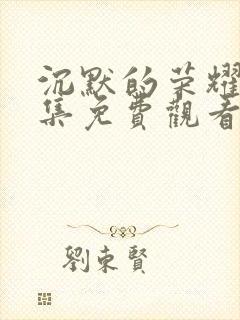 沉默的荣耀
集免費觀看
劉東賢